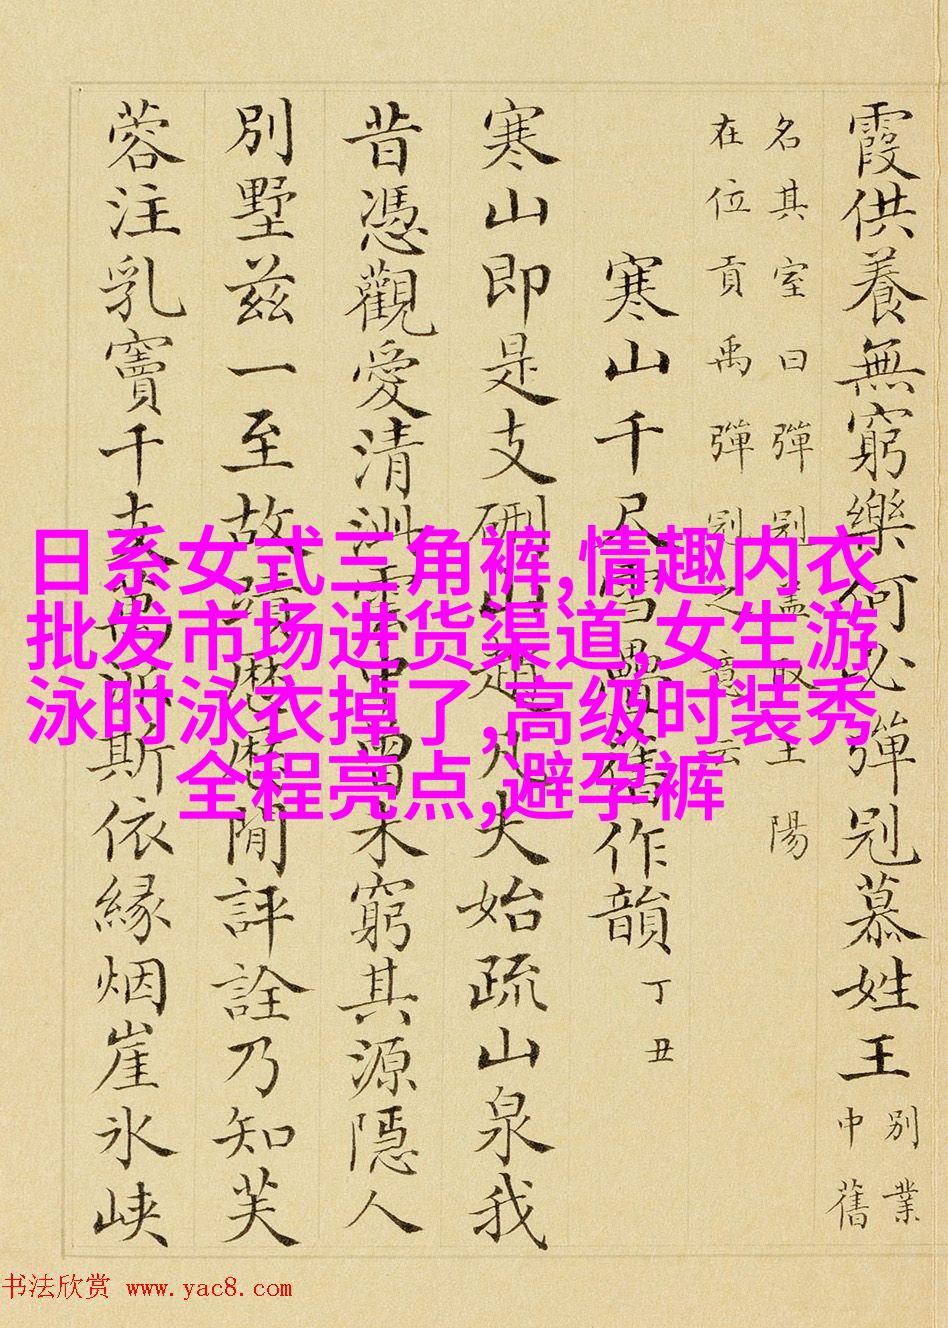 霞供養無窮樂何必彈冠慕姓王
別業
中舊
名其室曰彈冠蓋取王陽
在位貢禹彈冠之意云
寒山千尺雪疊舊作韻 丁丑
寒山即是支硎山趙凡夫始疏山泉我
昔憑觀愛清中曾未窮其源隱人
別墅茲一至故蹟歷歷閒評詮乃知芙
蓉注乳竇千支萬派斯依緣烟崖氷峽
日系女式三角裤,情趣内衣
批发市场进货渠道,女生游
泳时泳衣掉了,高级时装秀
全程亮点,避孕裤
书法欣赏 www.yac8.com